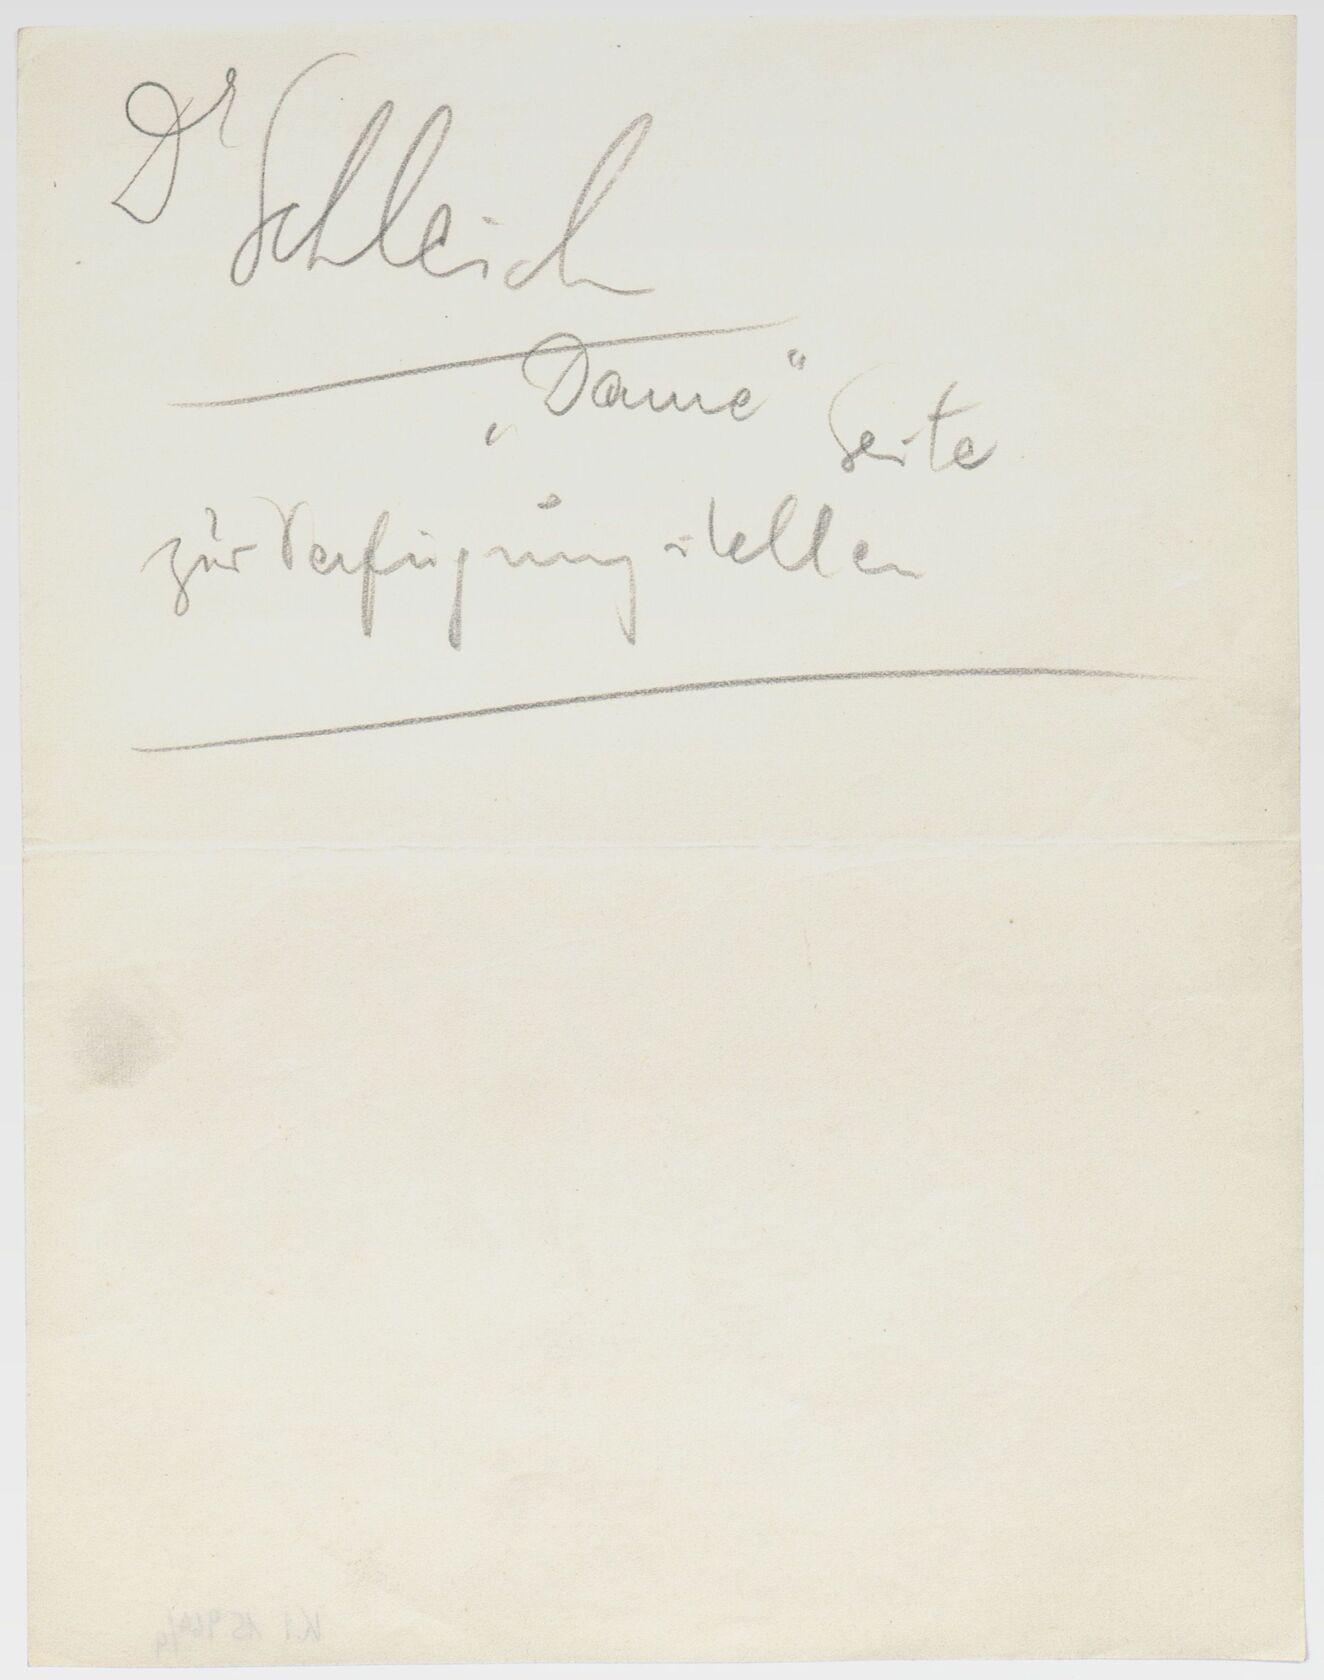 Dr Schleich
„Dame“ Seite
zur Verfügung stellen